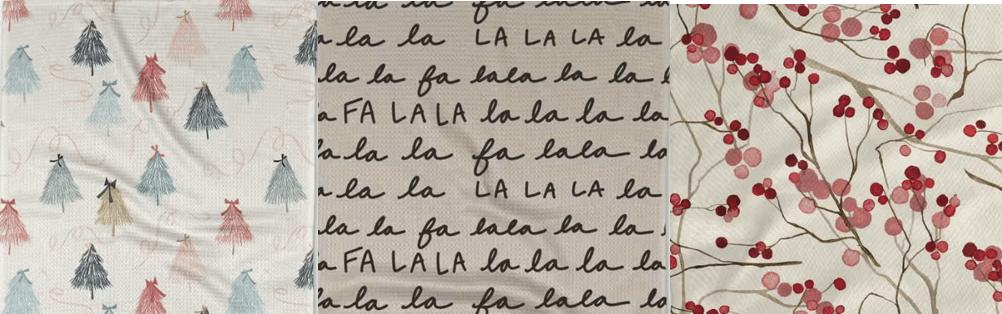 la la fa la la
a la la LA LA LA la
la la fa lala la la
a FA LA LA la la la la
la la la fa lala la
a la la LA LA LA la
la la fa lala la la
a FA LA LA la la la la
la la la fa lala la